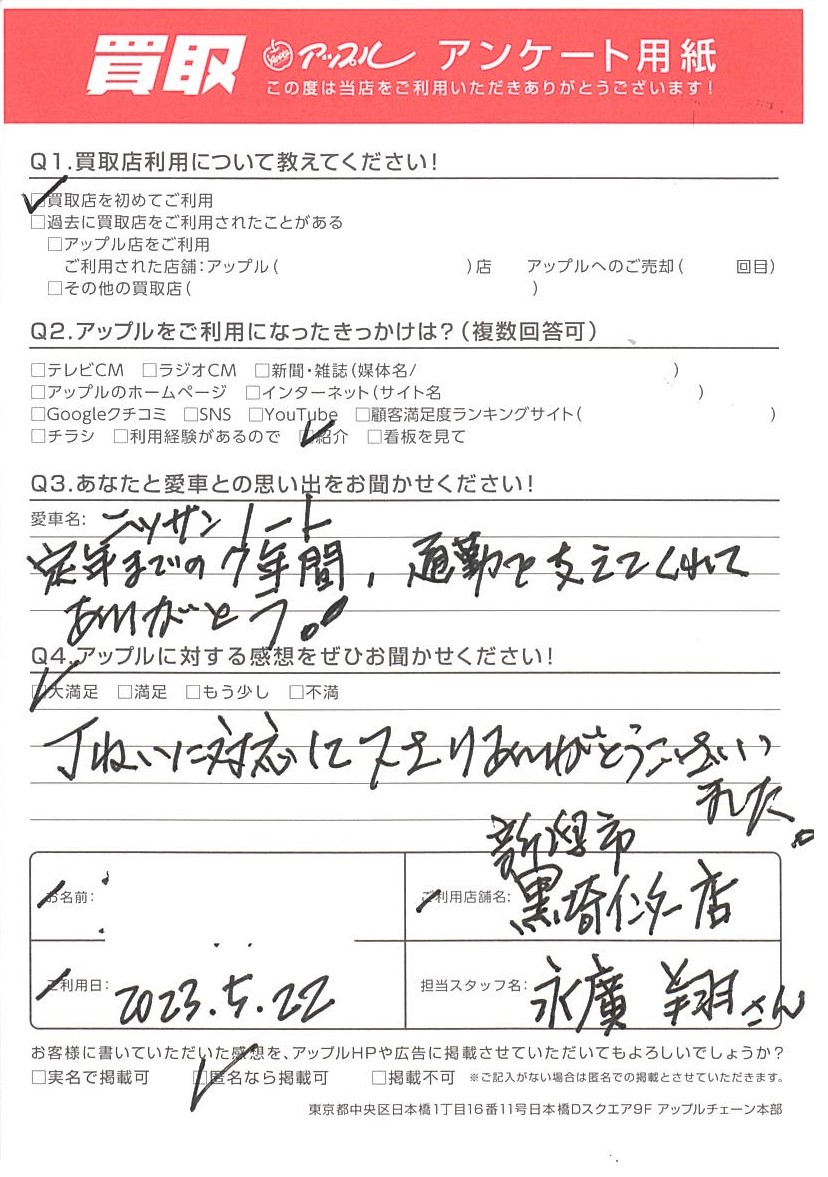 買取 アップル アンケート用紙
この度は当店をご利用いただきありがとうございます!
Q1.買取店利用について教えてください!
□買取店を初めてご利用
□過去に買取店をご利用されたことがある
□アップル店をご利用
ご利用された店舗:アップル( )店 アップルへのご売却( 回目)
□その他の買取店( )
Q2.アップルをご利用になったきっかけは?(複数回答可)
□テレビCM □ラジオCM □新聞・雑誌(媒体名/ )
□アップルのホームページ □インターネット(サイト名 )
□Googleクチコミ □SNS □YouTube □顧客満足度ランキングサイト( )
□チラシ □利用経験があるので □紹介 □看板を見て
Q3.あなたと愛車との思い出をお聞かせください!
愛車名: ニッサン ノート
定年までの7年間、通勤を支えてくれて
ありがとう。
Q4.アップルに対する感想をぜひお聞かせください!
□大満足 □満足 □もう少し □不満
丁ねいに対応に下さりありがとうございい
ました。
お名前:
ご利用店舗名: 新潟市
黒埼インター店
ご利用日: 2023.5.22
担当スタッフ名: 永廣 翔さん
お客様に書いていただいた感想を、アップルHPや広告に掲載させていただいてもよろしいでしょうか?
□実名で掲載可 □匿名なら掲載可 □掲載不可 ※ご記入がない場合は匿名での掲載とさせていただきます。
東京都中央区日本橋1丁目16番11号日本橋Dスクエア9F アップルチェーン本部